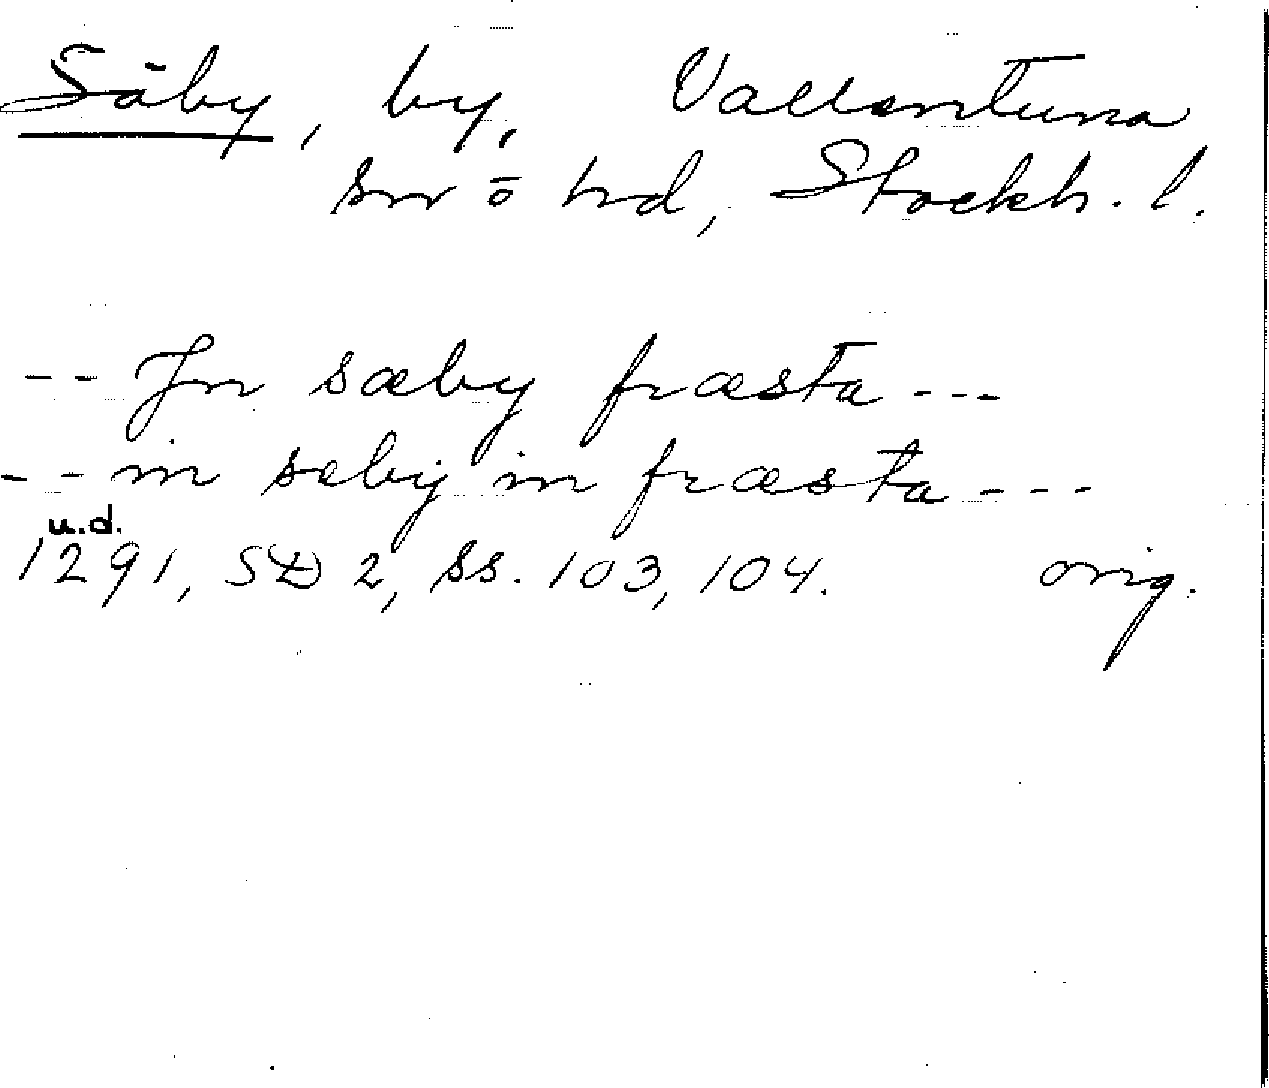 Säby, by, Vallentuna
sn ö hd, Stockh. l.
-- Jn sæby fræsta ---
-- in seby in fræsta ---
u.d.
1291, SD 2, ss. 103, 104. orig.